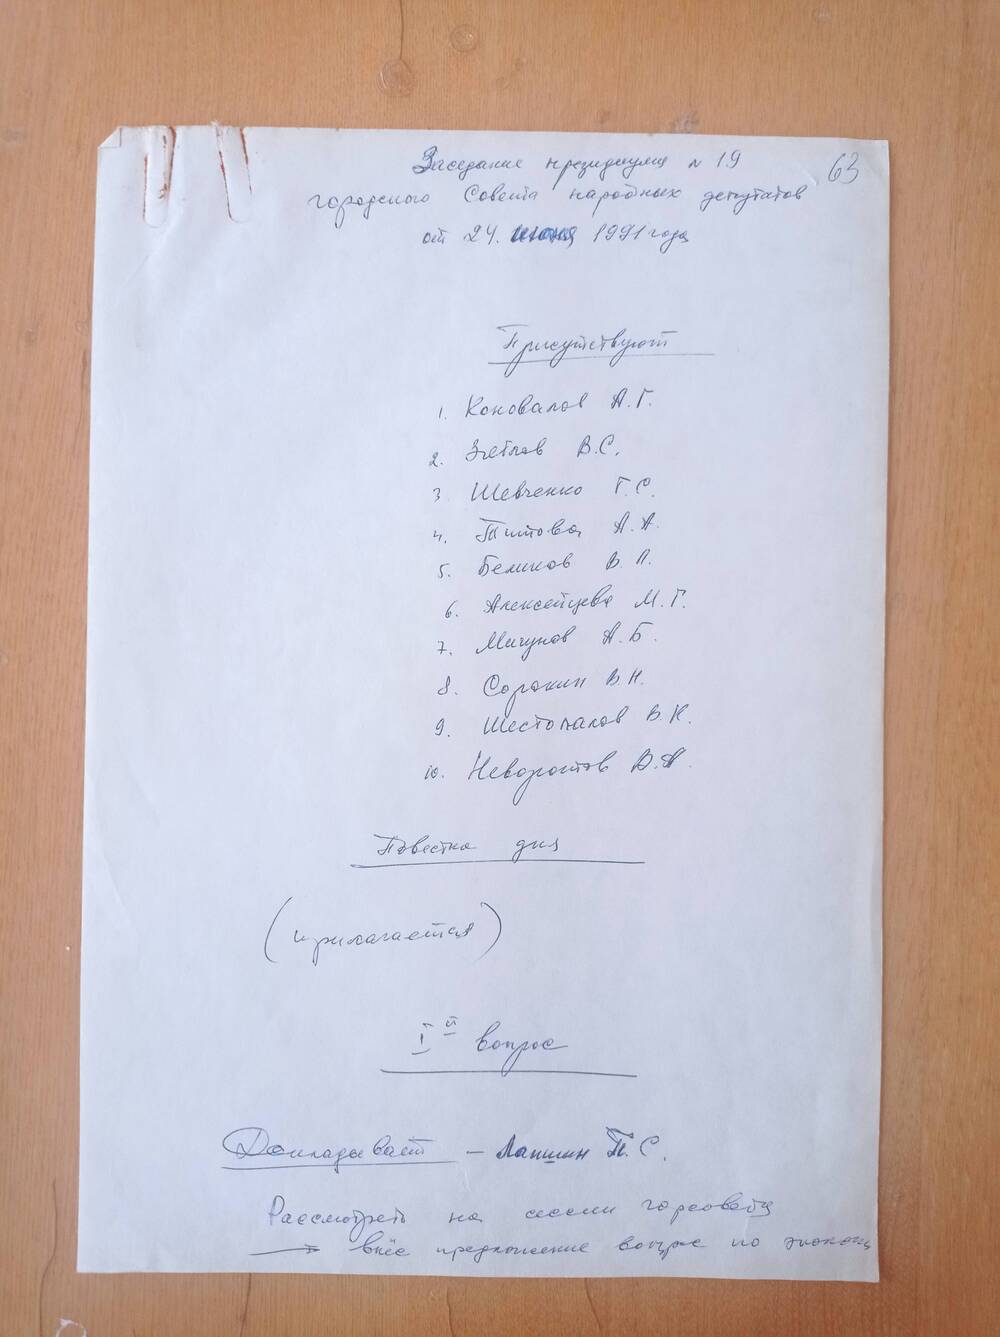 63
Заседание президиума № 19
городского Совета народных депутатов
от 24. июня 1991 года
Присутствуют
1. Коновалов А.Г.
2. В.С.
3 Шевченко Г.С.
4. Титова А.А.
5. Беликов В.П.
6. Алексейцева М.Г.
7. Мичунов А.Б.
8. Сорокин В.Н.
9. Шестопалов В.К.
10. Неворотов В.А.
Повестка дня
(прилагается)
I й вопрос
Докладывает – Лапшин П.С.
Рассмотреть на сессии горсовета
внёс предложение вопрос по